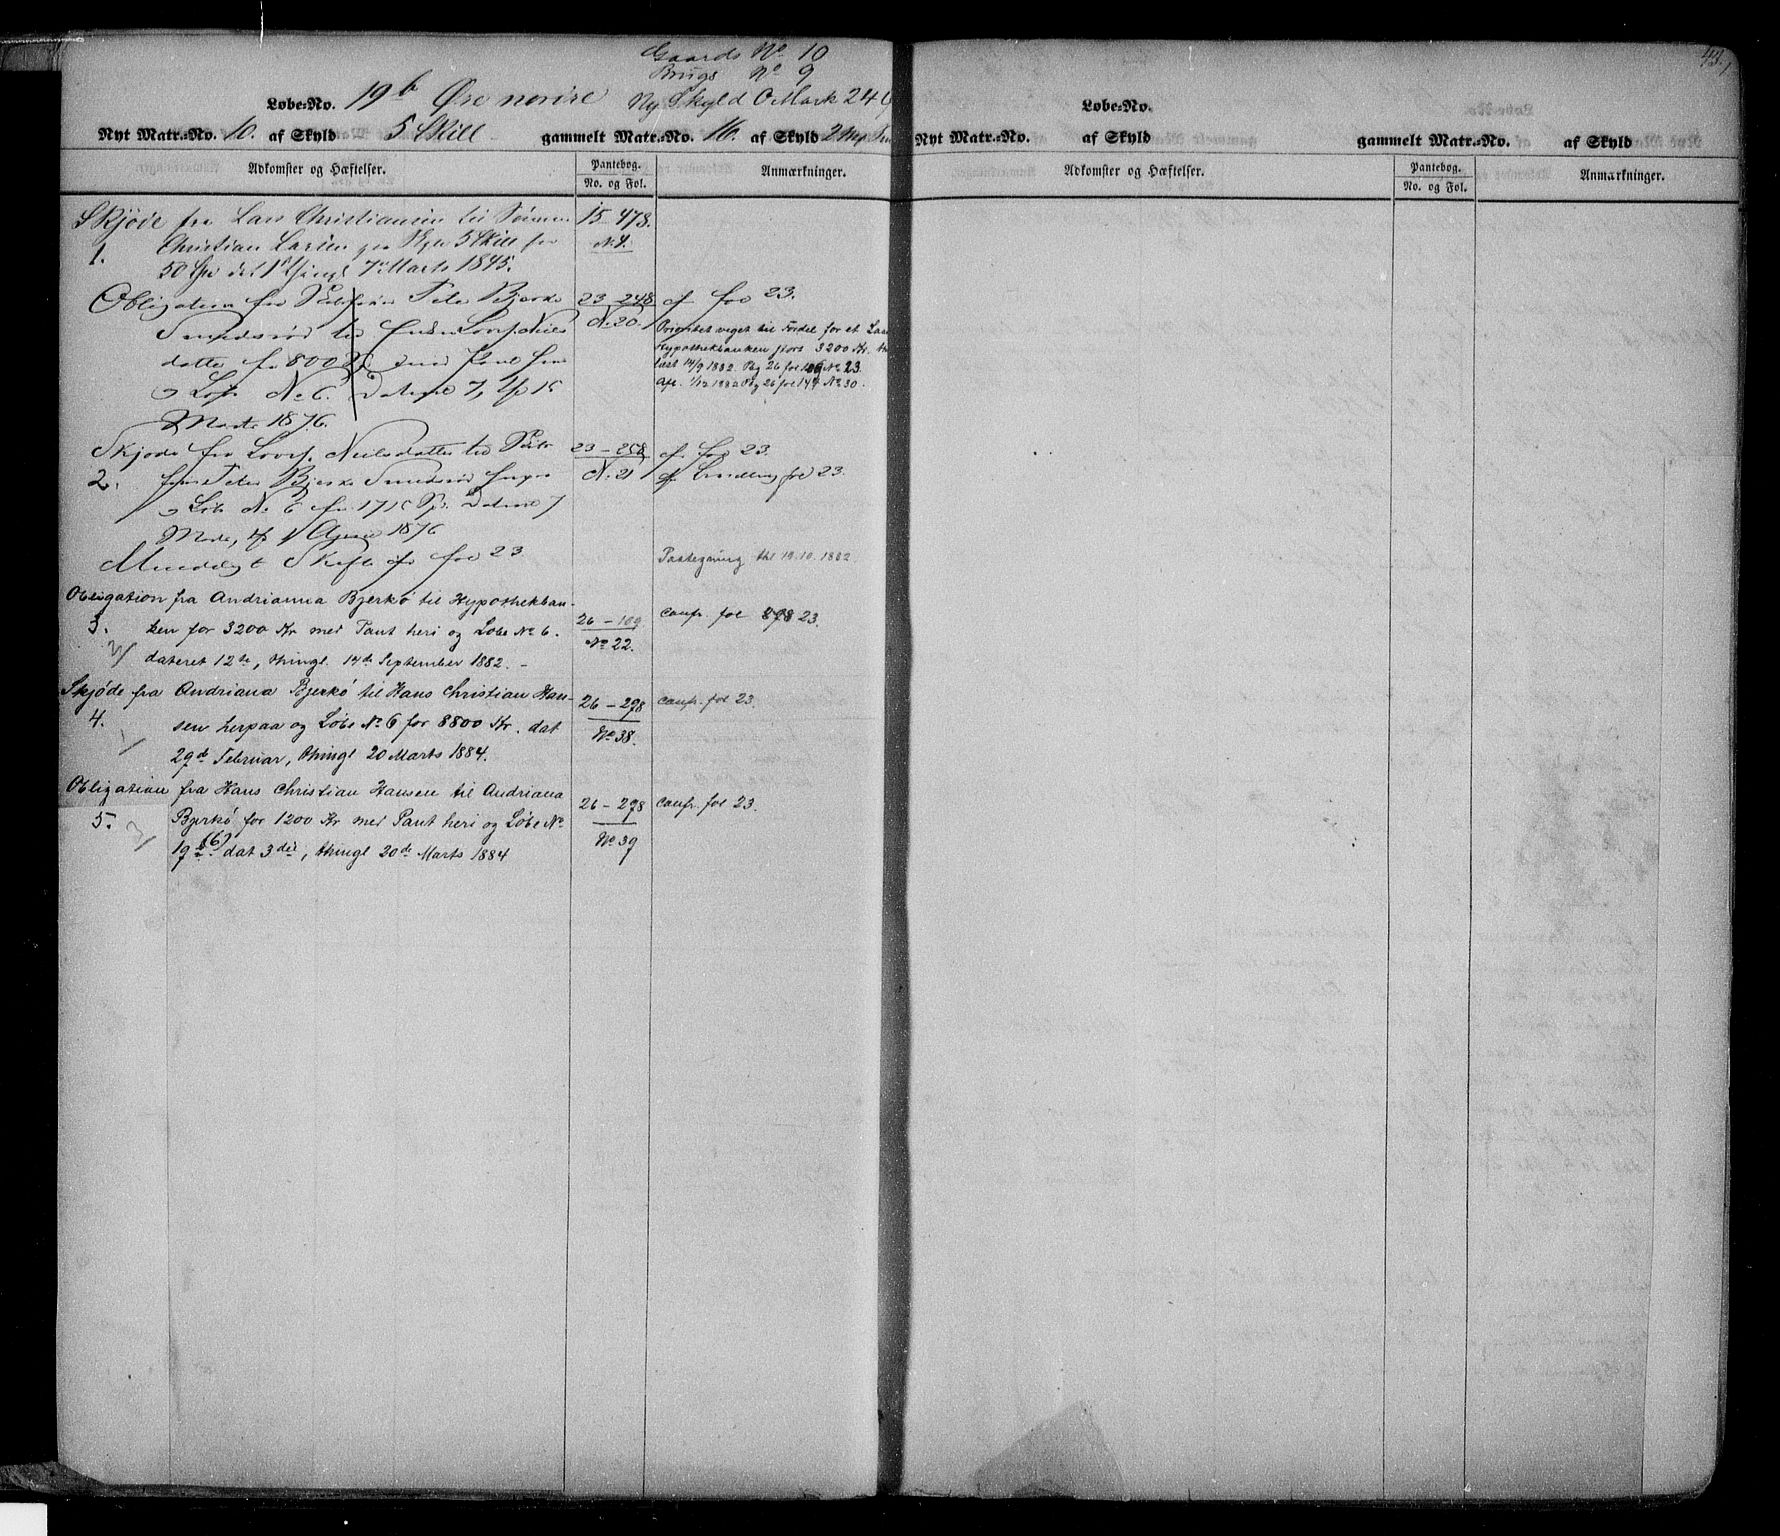 43.
Gaards No. 10
Brugs No. 9
Løbe-No. 19b Øre nordre Ny Skyld 0 Mark 24
Nyt Matr.-No. 10. af Skyld 5 Skill gammelt Matr.-No. 16. af Skyld
Adkomster og Hæftelser. Pantebog. No. og Fol. Anmærkninger.
Skjøde fra Lars Christiansen til Sønnen 15–478.
1. Christian Larsen paa Skyld 5 Skill for No. 4.
50 Spd dat 1st thingl 7de Marts 1845.
Obligation fra Peter Bjerkø 23–248 cf fol 23.
til Niels No. 20. Prioritet veget til Fordel for et Laan
datter for 800 med Pant Hypothekbanken stort 3200 Kr.
Løbe No 6. Dateret 7, 15 14/9 1882. Pag 26 fol 109 No 23
Marts 1876. Afl. 1/12 1882 Pag 26 fol 147 No 30.
Skjøde fra Nielsdatter til 23–258 cf. fol 23.
2. Peter Bjerkø No. 21 cf. fol 23.
Løbe No 6 for 1715 Spd. Dateret 7
Marts, April 1876
cf fol 23 Paategning thl 19.10.1882.
Obligation fra Andrianna Bjerkø til Hypothekban-
3. ken for 3200 Kr med Pant heri og Løbe No 6. 26–109 confr. fol 23.
2/ dateret 12te, thingl. 14de September 1882. – No 22.
Skjøde fra Andriana Bjerkø til Hans Christian Han- 26–278 confr. fol 23.
4. sen herpaa og Løbe No 6 for 8800 Kr. dat No 38.
1/ 29de Februar, thingl 20 Marts 1884.
Obligation fra Hans Christian Hansen til Andriana 26–278 confr. fol 23.
5. Bjerkø for 1200 Kr med Pant heri og Løbe No
3/ 19 (6) dat 3die, thingl 20de Marts 1884 No 39
Løbe-No.
Nyt Matr.-No. af Skyld gammelt Matr.-No. af Skyld
Adkomster og Hæftelser. Pantebog. No. og Fol. Anmærkninger.